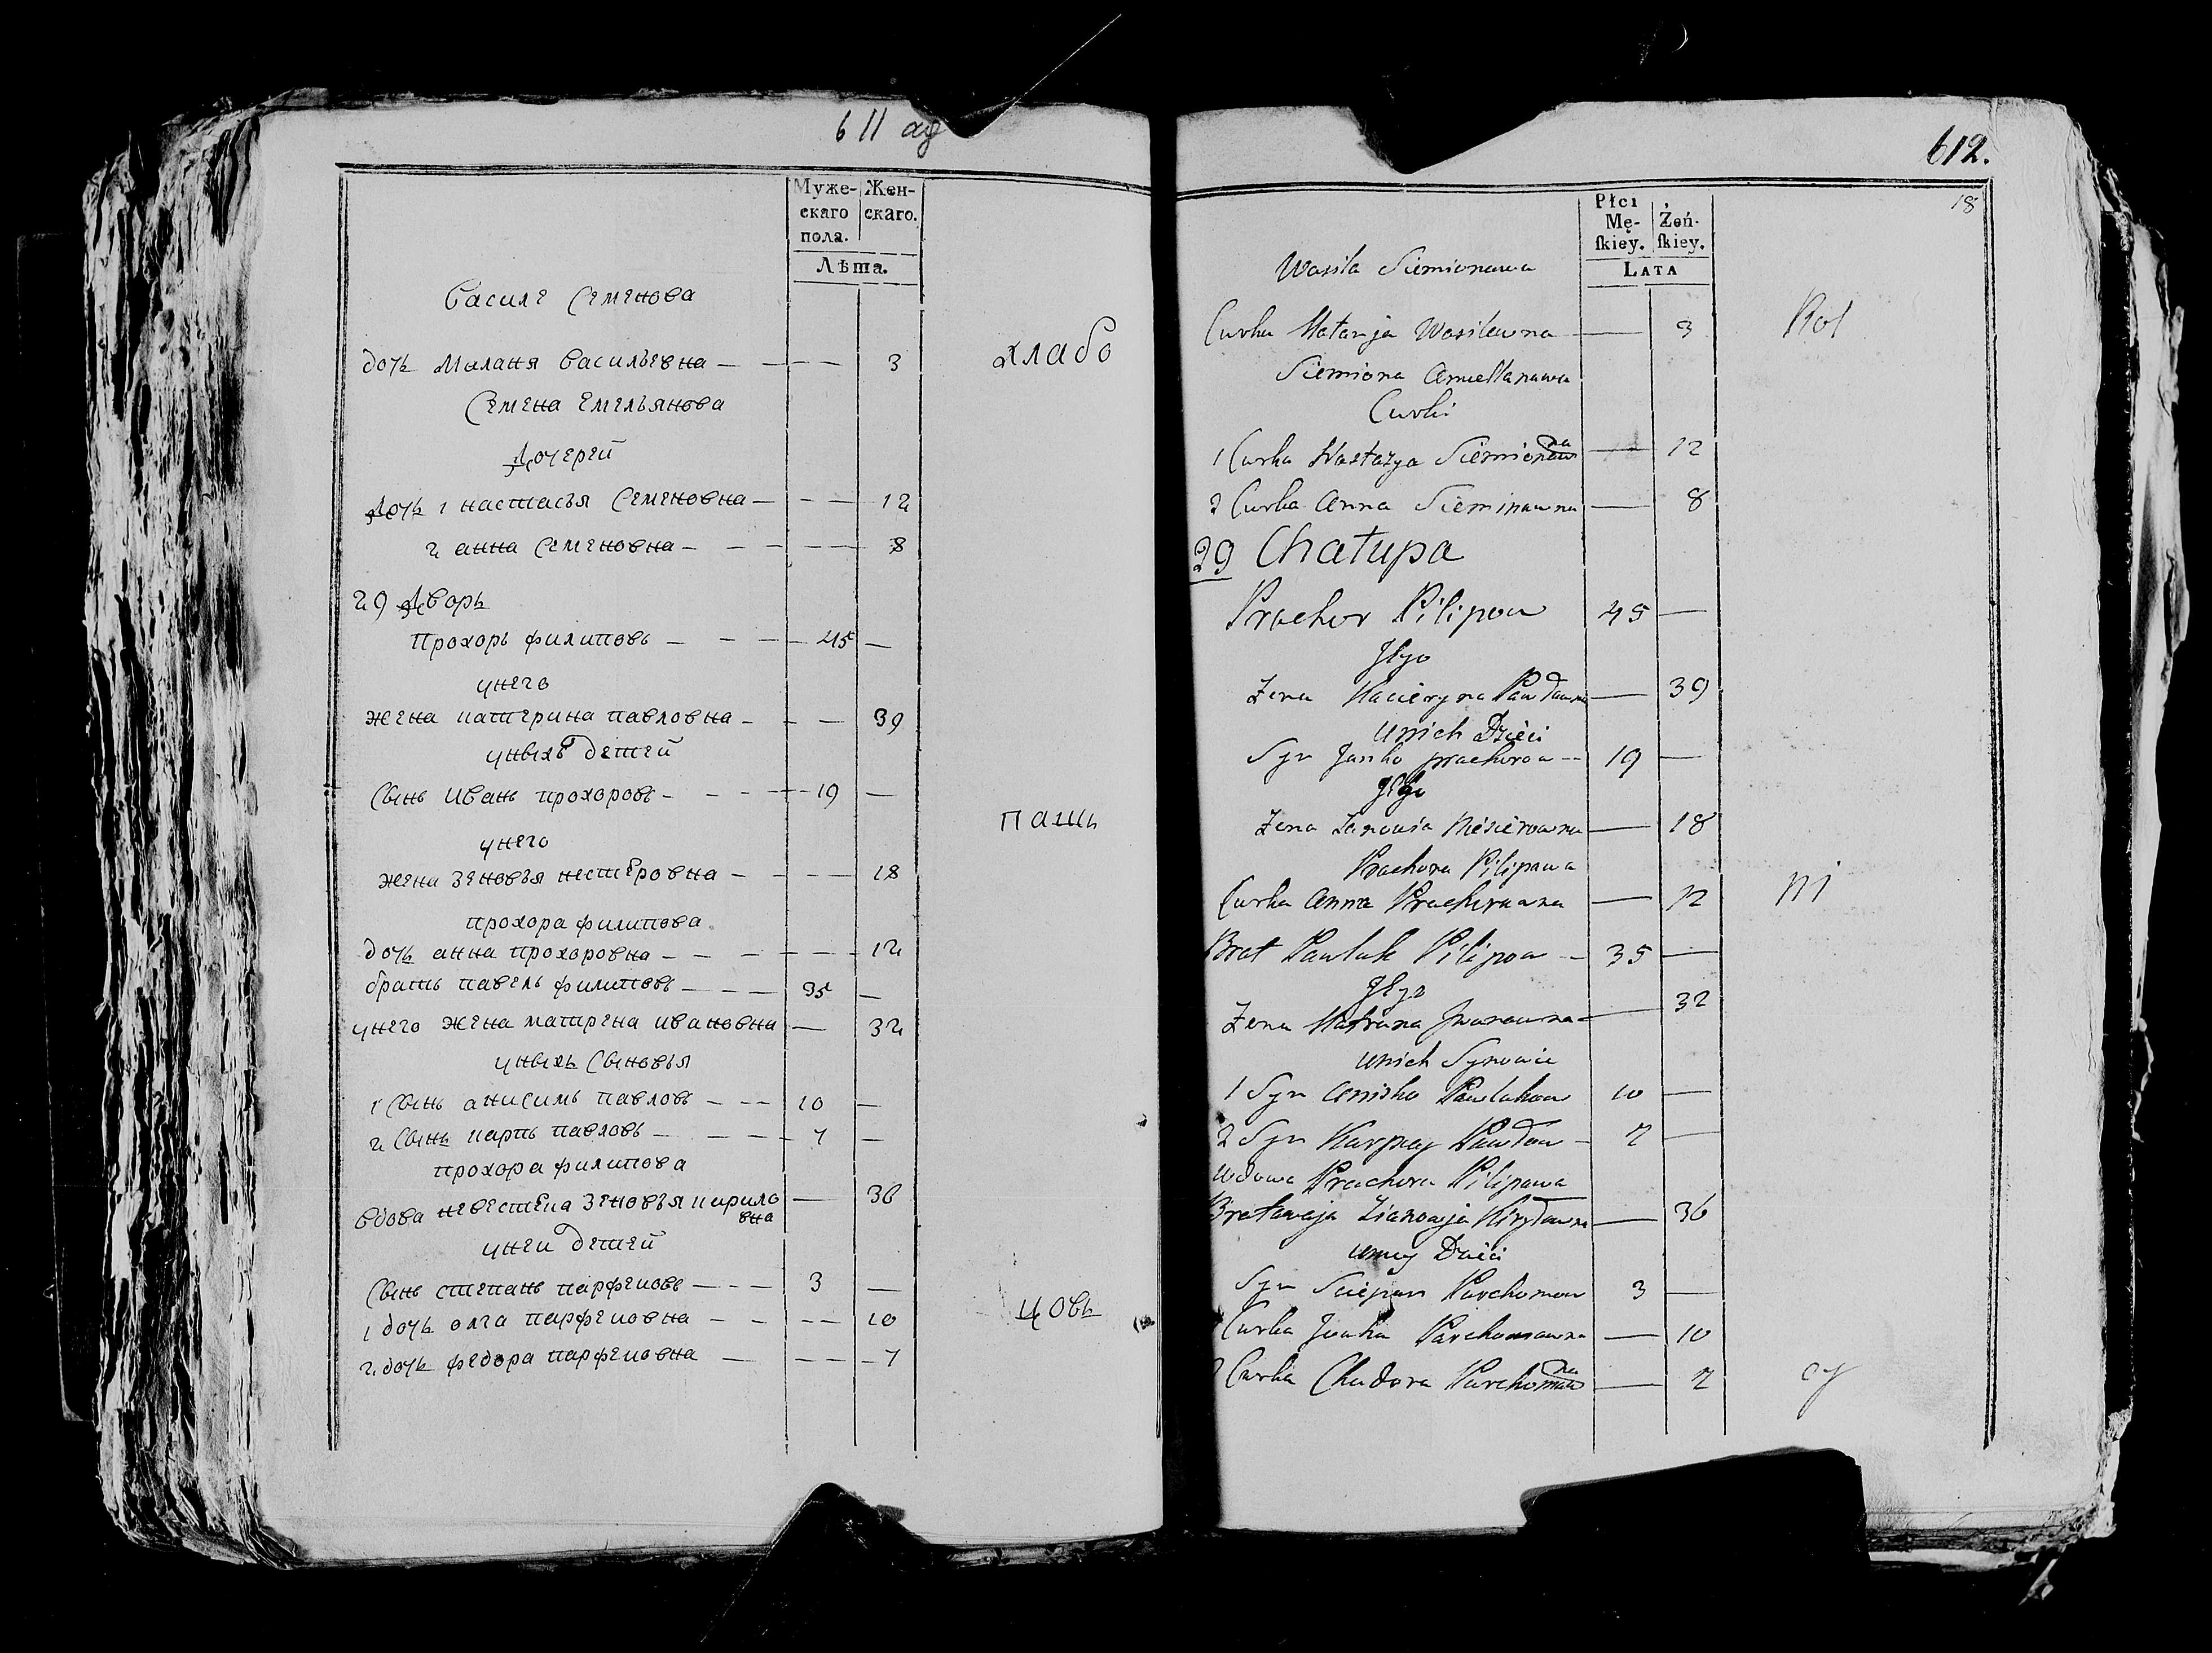 611 об
Муже-
скаго
пола.
Жен-
скаго.
Лѣта.
Василе Семенова
дочь Меланя Васильевна — — — 3
хлабо
Семена Емельянова
Дочерей
Дочь 1 настасья Семеновна — — — 12
2 анна Семеновна — — — 8
29 Дворь
Прохорь филиповь — — — 45 —
унего
жена катерина павловна — — — 39
уныхъ детей
Сынь Ивань прохоровь — — — 19 —
пашь
унего
жена зеновья нестеровна — — — 18
прохора филипова
дочь анна прохоровна — — — 12
брать павель филиповь — — — 35 —
унего жена матрена ивановна — 32
уныхь Сыновья
1 Сынь анисимь павловь — — 10 —
2 Сынь карпь павловь — — — 7 —
прохора филипова
вдова невестка зеновья кирило
вна — 36
унеи детей
Сынь степань парфеновь — — — 3 —
1 дочь олга парфеновна — — — 10
цовь
2 дочь федора парфеновна — — — 7
612.
18
Płci
Mę-
skiey.
Żeń-
skiey.
Lata
Wasila Siemionawa
Curka Małanja Wasilewna — 3
Rol
Siemiona Amellanawa
Curki
1 Curka Nastazya Siemionawna — 12
2 Curka Anna Sieminawna — 8
29 Chałupa
Prachor Pilipow 45 —
Jego
Zena Kacieryna Pawławna — 39
Unich Dzieci
Syn Janko prachorow -- 19 —
Jego
Zena Zanowia Nescierowna — 18
Prachora Pilipawa
ni
Curka Anna Prachorawna — 12
Brat Pawluk Pilipow -- 35 —
Jego
Zena Matruna Jwanawna — 32
unich Synowie
1 Syn Anisko Pawlukow 10 —
2 Syn Karpey Pawłow - 7 —
Wdowa Prachora Pilipawa
Bratawaja Zianowja Kiryławna — 36
uniey Dzieci
Syn Sciepan Parchomow 3 —
Curka Juuka Parchomawna — 10
2 Curka Chudora Parchomawna — 7
cy